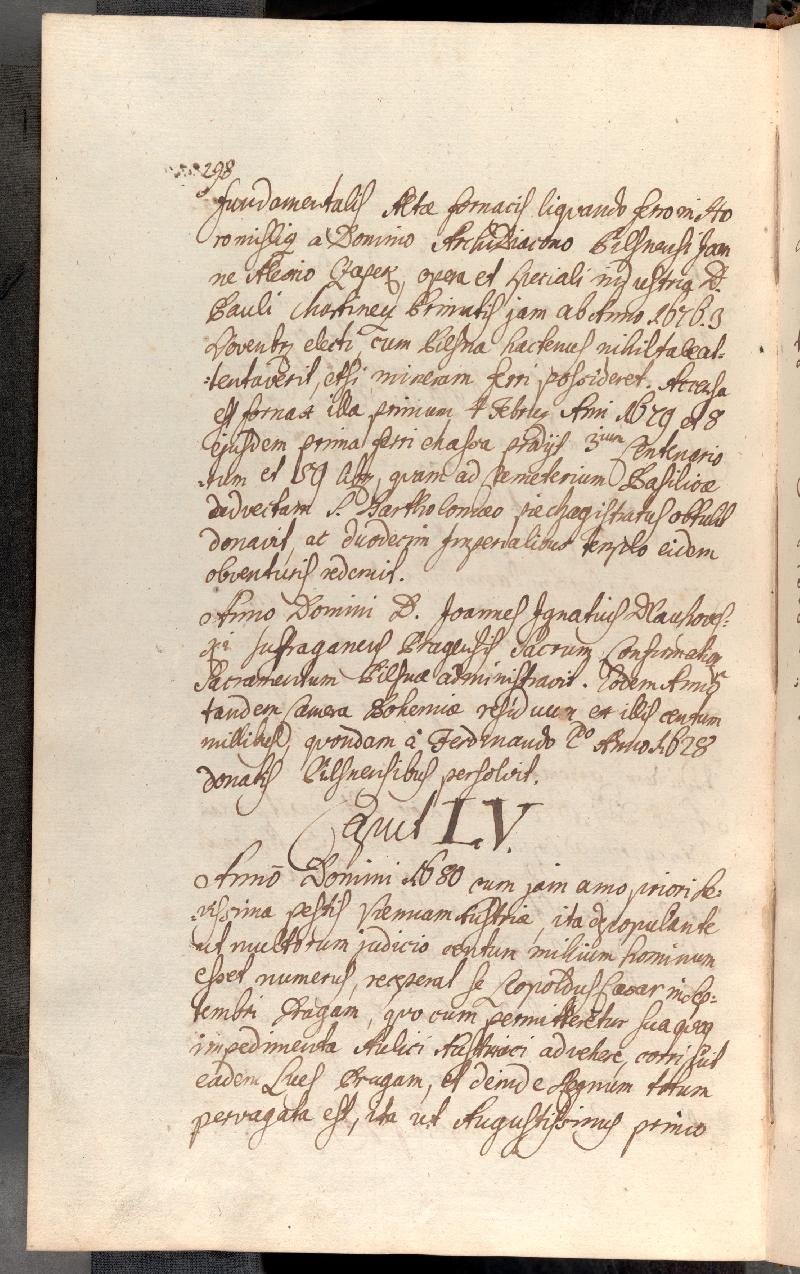 298
fundamentalis Altæ fornacis liquando ferro in Ho
romislig a Domino ArchiDiacono Pilsnensi Joan
ne Alexio Czapek, opera et speciali industria D.
Pauli Primatis jam ab Anno 1676. 3
Novembr electi, cum Pilsna hactenus nihil tale at-
-tentaverit, etsi mineram ferri possideret. Accensa
est fornax illa primum 4 Febru Anni 1679 et 8
ejusdem prima ferri massa prodijt 3ium Centenario
rum et 59 quam ad Cæmeterium Basilicæ
advectam S. Bartholomæo pie Magistratus obtulit
donavit, ac duodecim Imperialibus templo eidem
obventuris redemit.
Anno Domini D. Joannes Ignatius Dlauhoves-
ki Suffraganeus Pragensis Sacrum Confirmationis
Sacramentum Pilsnæ administravit. Eodem Anno
tandem Camera Bohemiæ residuum ex illis centum
millibus, quondam à Ferdinando 2do Anno 1628
donatis Pilsnensibus persolvit.
Caput LV.
Anno Domini 1680 cum jam anno priori sæ-
-vissima pestis Viennam Austriæ, ita depopulante
ut multorum judicio centum millium hominum
esset numerus, receperat se Leopoldus Cæsar in Sep-
tembri Pragam, quo cum permitteretur suaquæq
impedimenta Aulici Austriaci advehere, corripuit
eadem Lues Pragam, et deinde Regnum totum
pervagata est, ita ut Augustissimus primo